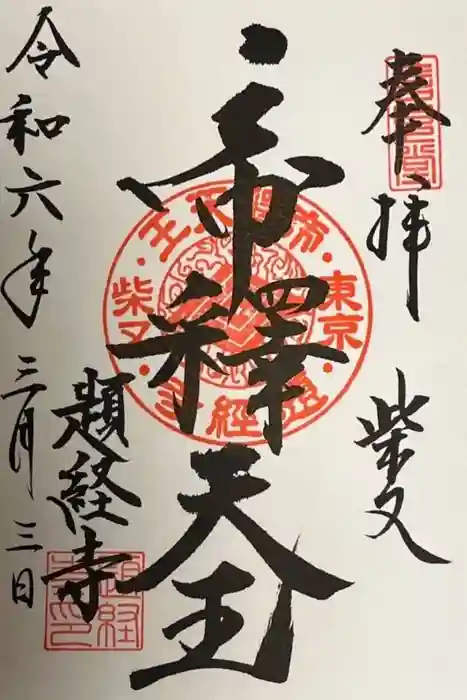 奉拝
柴又
帝釋天王
題経寺
令和六年三月三日
東京
柴又
題経寺